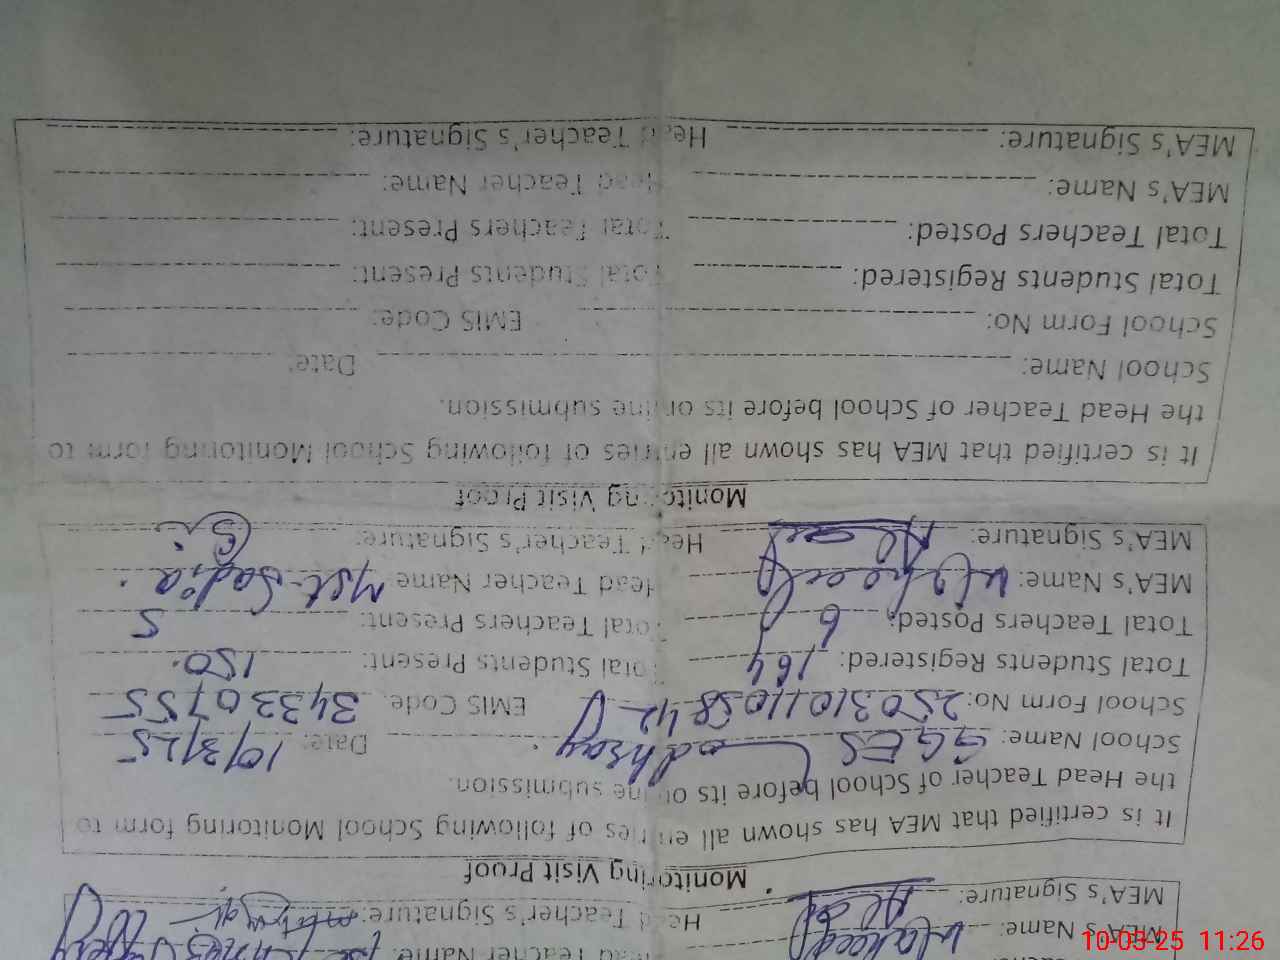 MEA's Name: Waheed Head Teacher Name:
MEA's Signature: Head Teacher's Signature:
Monitoring Visit Proof
It is certified that MEA has shown all entries of following School Monitoring School form to
the Head Teacher of School before its online submission.
School Name: GGES Date: 10/3/25
School Form No: 2503101105842 EMIS Code: 34330755
Total Students Registered: 164 Total Students Present: 150.
Total Teachers Posted: 6 Total Teachers Present: 5
MEA's Name: Waheed Head Teacher Name Mst. Sadia.
MEA's Signature: Head Teacher's Signature:
Monitoring Visit Proof
It is certified that MEA has shown all entries of following School Monitoring form to
the Head Teacher of School before its online submission.
School Name: Date:
School Form No: EMIS Code:
Total Students Registered: Total Students Present:
Total Teachers Posted: Total Teachers Present:
MEA's Name: Head Teacher Name:
MEA's Signature: Head Teacher's Signature:
10-03-25 11:26